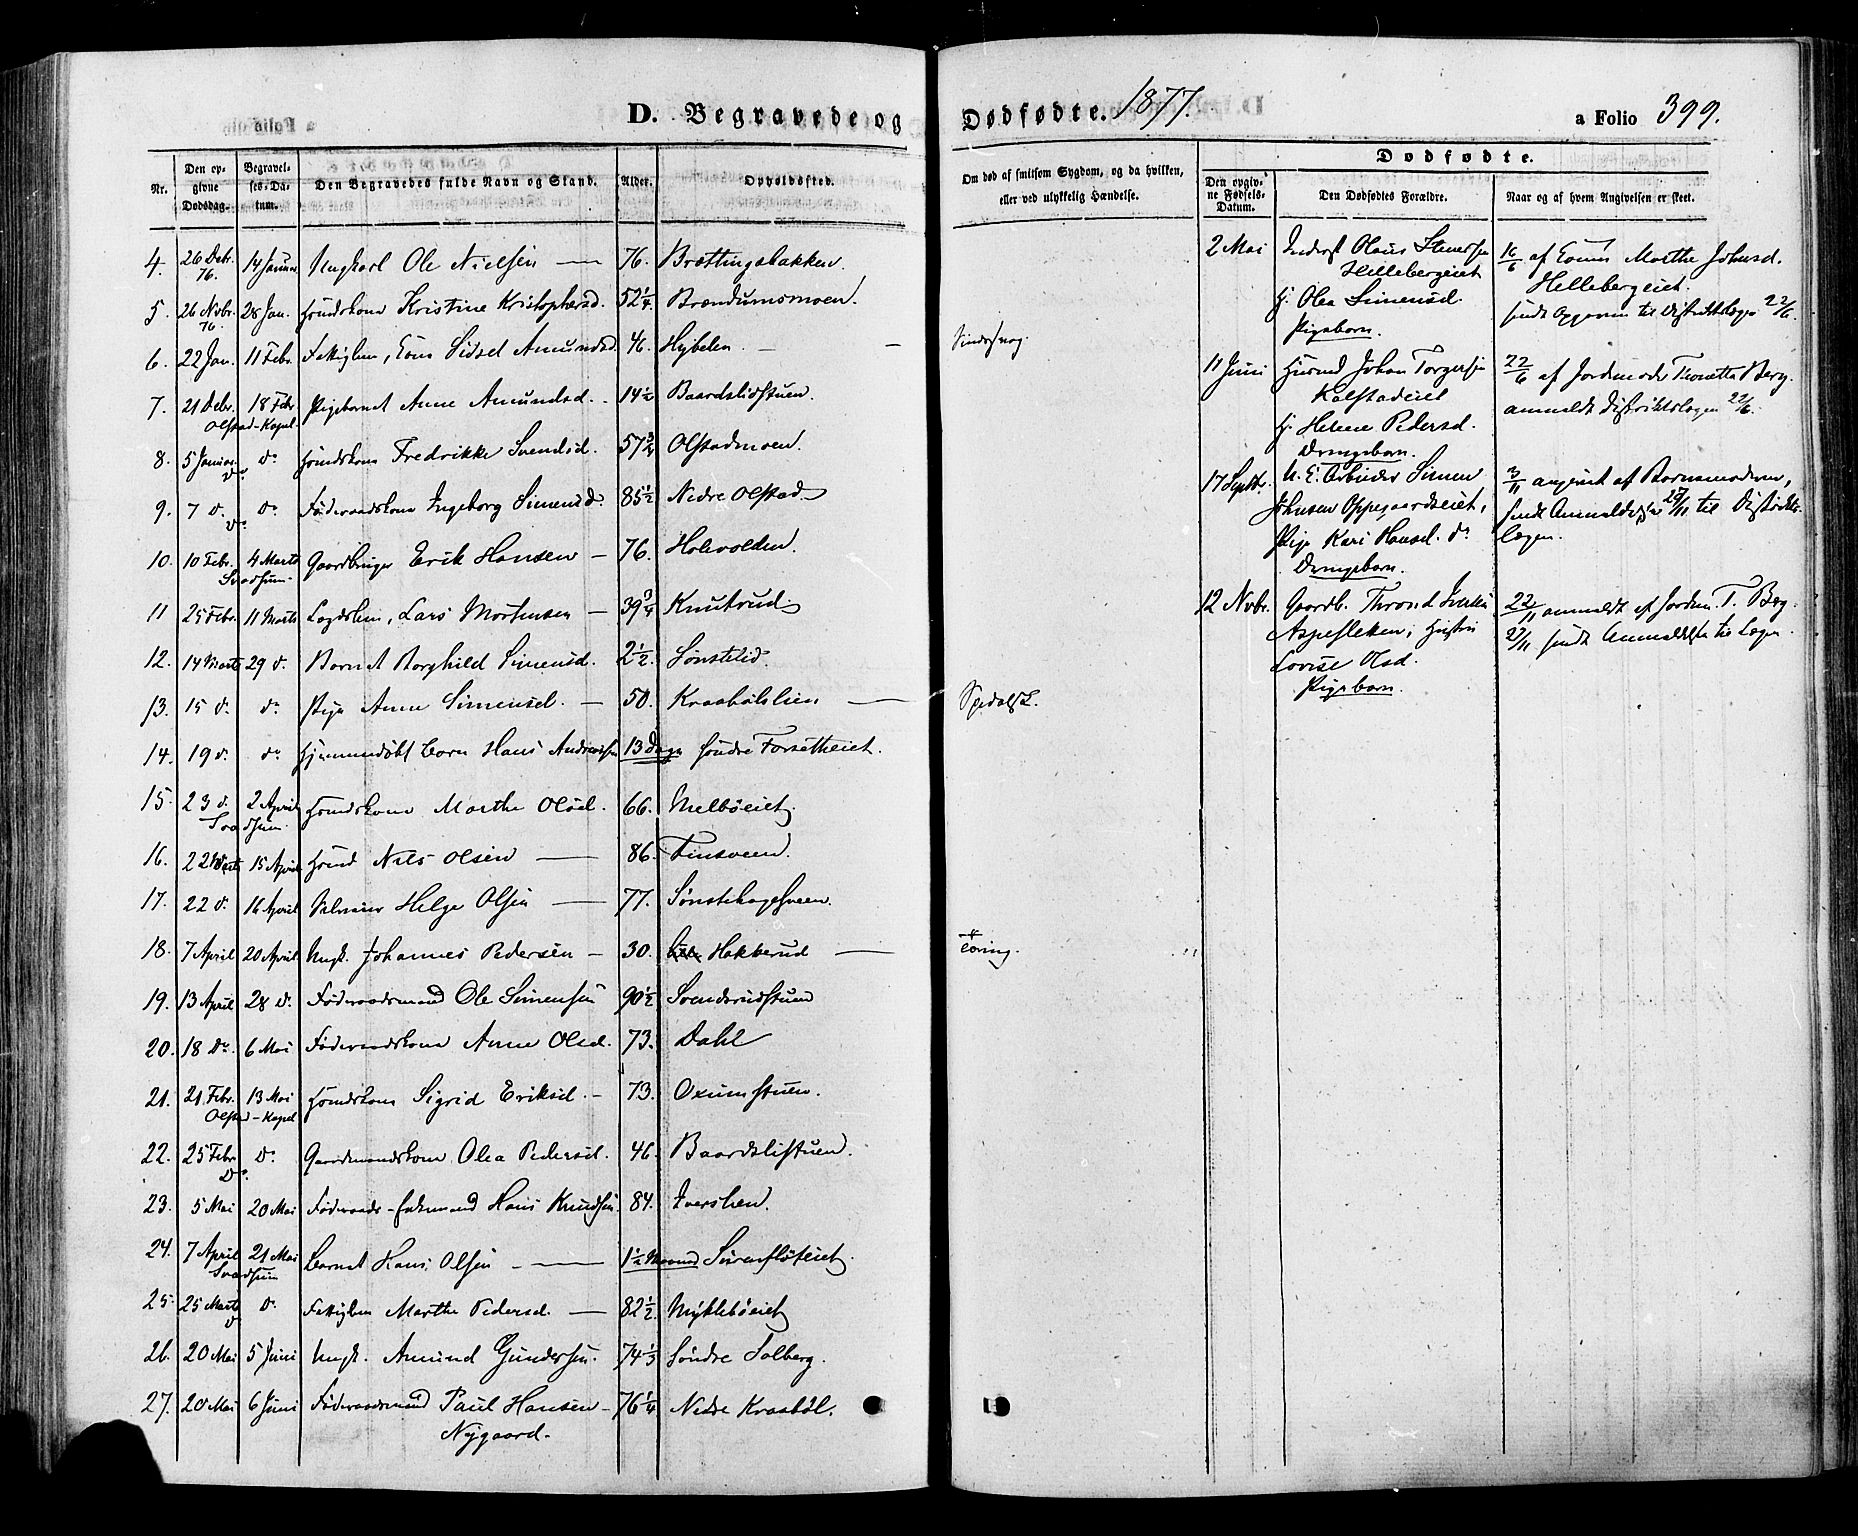 D. Begravede og Dødfødte. 1877.
a Folio 399.
Nr.
Den opgivne Dødsdag.
Begravelses-Datum.
Den Begravedes fulde Navn og Stand.
Alder.
Opholdssted.
Om død af smitsom Sygdom, og da hvilken, eller ved ulykkelig Hændelse.
Dødfødte.
Den opgivne Fødsels-Datum.
Den Dødfødtes Forældre.
Naar og af hvem Angivelsen er skeet.
4. 26 Debr. 76. 14 Januar Ungkarl Ole Nielsen — 76. Brættingsbakken.
5. 26 Novbr. 76. 28 Jan. Huusmdskone Kristine Kristophersd. 52 1/4 Brændumsmoen.
6. 22 Jan. 11 Febr. Fattiglem, Enke Sidsel Amundsd. 46. Hybelen —
7. 21 Debr. 18 Febr. Pigebarnet Anne Amundsd. 14 1/2 Baardslidstuen.
Olstad-Kapel
8. 5 Januar do Huusmdskone Fredrikke Svendsd. 57 3/4 Olstadmoen.
do
9. 7 d. do Føderaadskone Ingeborg Simensd. 85 1/2 Nedre Olstad
do
10. 10 Febr. 4 Marts Gaardbruger Erik Hansen — 76. Holevolden.
Svadsum
11 25 Febr. 11 Marts Lægdslem, Lars Mortensen — 39 3/4 Knutrud.
12. 14 Marts 29 d. Barnet Borghild Simensd. 2 1/2. Sønstelid.
13. 15 d. do Pige Anne Simensd. — 50. Kraabølslien — Spedalsk.
14. 19 d. do Hjemmedøbt Barn Hans Andreassen 13 Dage Søndre Forsetheiet.
15. 23 d. 2 April Huusmdskone Marthe Olsd. 66. Melbøeiet
Svadsum
16. 22 Marts 15 April Huusmd Nils Olsen — 86. Finsveen.
17. 22 d. 16 April Helge Olsen — 77. Sønstehagesveen.
18. 7 April 20 April Ungk. Johannes Pedersen — 30. Hakkerud — Tæring.
19. 13 April 28 d. Føderaadsmand Ole Simensen 90 1/2 Svendsrudstuen
20. 18 do 6 Mai Føderaadskone Anne Olsd. 73. Dahl
21. 21 Febr. 13 Mai Huusmdskone Sigrid Eriksd. — 73. Oxumstuen.
Olstad-Kapel
22. 25 Febr do Gaardmandskone Olea Pedersd. 46. Baardslistuen.
do
23. 5 Mai 20 Mai Føderaads-Enkemand Hans Knudsen 84. Iverslien.
24. 7 April 21 Mai Barnet Hans Olsen — 1 1/2 Maaned
Svadsum
25. 25 Marts do Fattiglem Marthe Pedersd. — 82 1/2. Myklebøeiet
do
26. 20 Mai 5 Juni Ungk. Amund Gundersen. 74 1/3 Søndre Solberg.
27. 20 Mai 6 Juni Føderaadsmand Paul Hansen — 76 1/4 Nedre Kraabøl.
Nygaard.
2 Mai Inderst Olaus Hellebergeiet H. Olea Simensd. Pigebarn.
16/6 af Marthe Johnsd. Hellebergeiet. sendt Opgaven til Distriktslægen 22/6.
11 Juni Huusmd Johan Torgersen Kalstadeiet H. Helene Pedersd. Drengebarn.
22/6 af Jordemoder Thonetta Berg. anmeldt Distriktslægen 22/6.
17 Septbr. U. E. Arbeider Simen Johnsen Oppegaardseiet, Pige Kari Hansd. do Drengebarn.
3/11 angivet af Barnemoderen, sendt Anmeldelse 27/11 til Distriktslægen.
12 Nvbr. Gaardb. Thrond Aspesletten; Hustru Lovise Olsd. Pigebarn.
22/11 anmeldt af Jordm. T. Berg. 27/11 sendt Anmeldelse til Lægen.